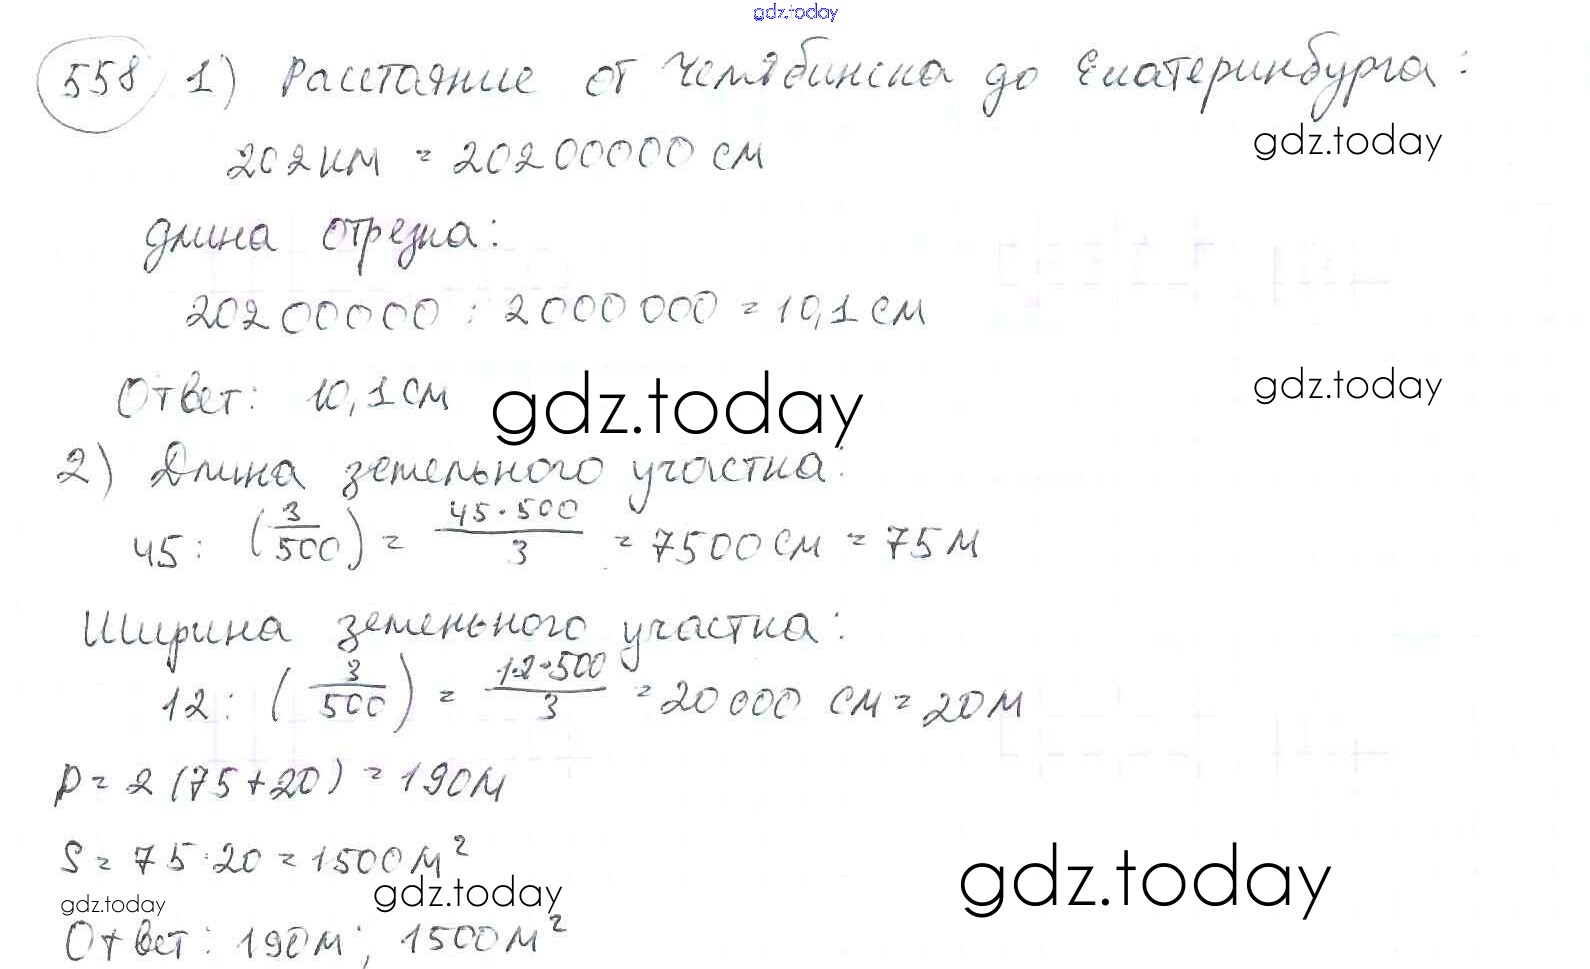 gdz.today
558 1) Расстояние от Челябинска до Екатеринбурга:
gdz.today
202 км = 20200000 см
длина отрезка:
20200000 : 2000000 = 10,1 см
gdz.today
Ответ: 10,1 см
gdz.today
2) Длина земельного участка:
45 : (3/500) = 45·500/3 = 7500 см = 75 м
Ширина земельного участка:
12 : (3/500) = 12·500/3 = 20000 см = 20 м
P = 2 (75+20) = 190 м
S = 75·20 = 1500 м²
gdz.today
gdz.today
gdz.today
Ответ: 190 м; 1500 м²